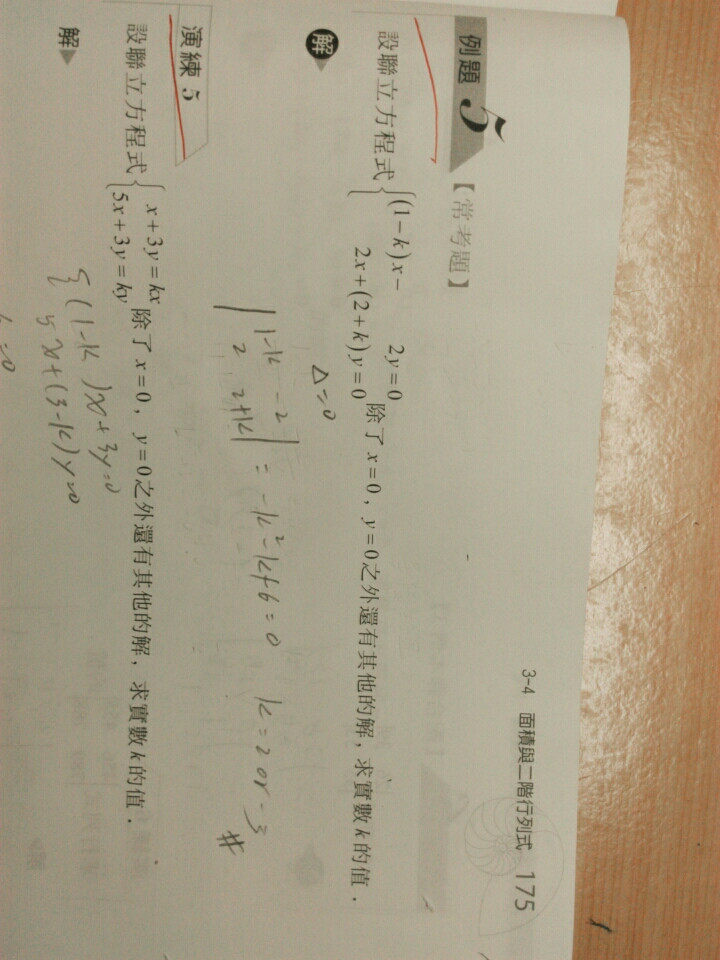 3-4 面積與二階行列式 175
例題 5 【常考題】
設聯立方程式 { (1−k)x− 2y=0
2x+(2+k)y=0 除了 x=0, y=0之外還有其他的解, 求實數 k 的值.
解
△=0
| 1-k -2
2 2+k | = -k²-k+6=0 k=2 or -3 #
演練 5
設聯立方程式 { x+3y=kx
5x+3y=ky 除了 x=0, y=0之外還有其他的解, 求實數 k 的值.
解
{ (1-k)x+3y=0
5x+(3-k)y=0